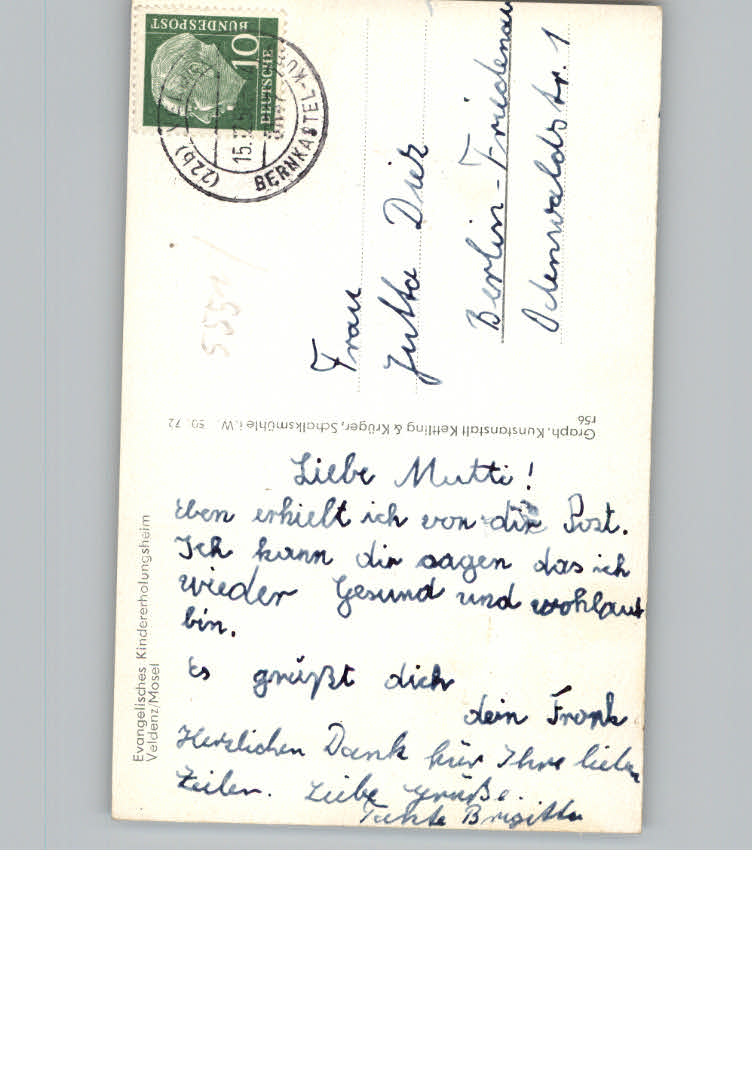 Liebe Mutti!
Eben erhielt ich von dir Post.
Ich kann dir sagen das ich
wieder Gesund und wohlauf
bin.
Es grüßt dich
dein Frank
Herzlichen Dank für Ihre lieben
Zeilen. Liebe Grüße.
Tante Brigitte
Evangelisches Kindererholungsheim
Veldenz/Mosel
Graph. Kunstanstalt Kettling & Krüger, Schalksmühle i.W.
r56
Frau
Jutta
Berlin-Friedenau
Odenwaldstr. 1
DEUTSCHE
BUNDESPOST
10
(22b)
BERNKASTEL-KU
15.12.